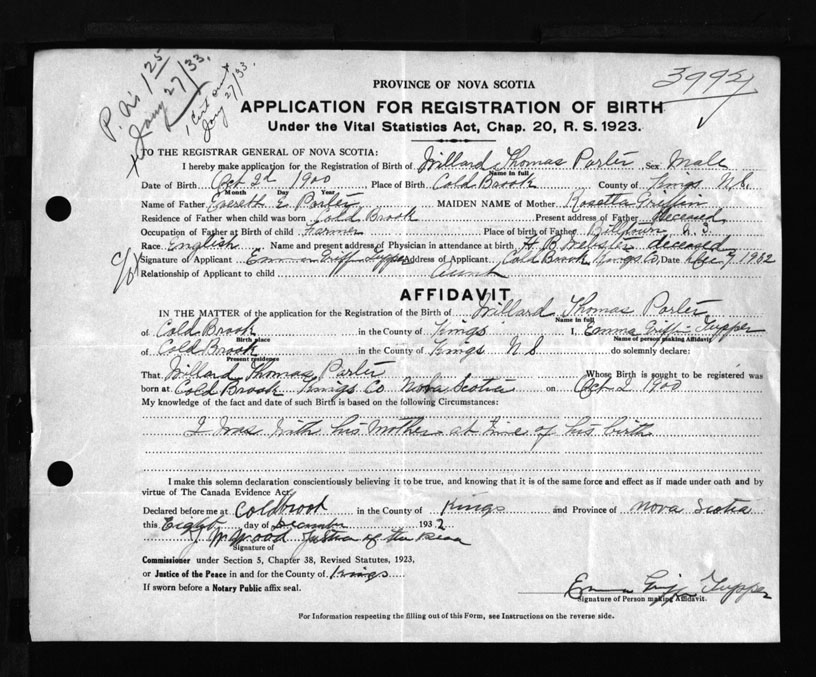 P. N. 1 25
Jany 27/33.
1 Cert out
Jany 27/33.
3992
PROVINCE OF NOVA SCOTIA
APPLICATION FOR REGISTRATION OF BIRTH
Under the Vital Statistics Act, Chap. 20, R. S. 1923.
TO THE REGISTRAR GENERAL OF NOVA SCOTIA:
I hereby make application for the Registration of Birth of Willard Thomas Porter Sex Male
Name in full
Date of Birth Oct 2d 1900 Place of Birth Cold Brook County of Kings N.S.
Month Day Year
Name of Father Everett E. Porter MAIDEN NAME of Mother Rosetta
Residence of Father when child was born Cold Brook Present address of Father deceased
Occupation of Father at Birth of child Farmer Place of birth of Father Billtown N. S.
Race English Name and present address of Physician in attendance at birth H B Webster deceased
Signature of Applicant Emma Griff Tupper Address of Applicant Cold Brook Kings Co, Date Dec 7 1932
Relationship of Applicant to child Aunt
AFFIDAVIT
IN THE MATTER of the application for the Registration of the Birth of Willard Thomas Porter
Name in full
of Cold Brook in the County of Kings I, Emma Griff Tupper
Birth place Name of person making Affidavit
of Cold Brook in the County of Kings N S do solemnly declare:
Present residence
That Willard Thomas Porter Whose Birth is sought to be registered was
born at Cold Brook Kings Co Nova Scotia on Oct 2 1900
My knowledge of the fact and date of such Birth is based on the following Circumstances:
I was with his Mother at time of his birth
I make this solemn declaration conscientiously believing it to be true, and knowing that it is of the same force and effect as if made under oath and by
virtue of The Canada Evidence Act.
Declared before me at Coldbrook in the County of Kings and Province of Nova Scotia
this Eighth day of December 1932
Wood Justice of the Peace
Signature of
Commissioner under Section 5, Chapter 38, Revised Statutes, 1923,
or Justice of the Peace in and for the County of Kings
If sworn before a Notary Public affix seal.
Emma Griff Tupper
Signature of Person making Affidavit.
For Information respecting the filling out of this Form, see Instructions on the reverse side.